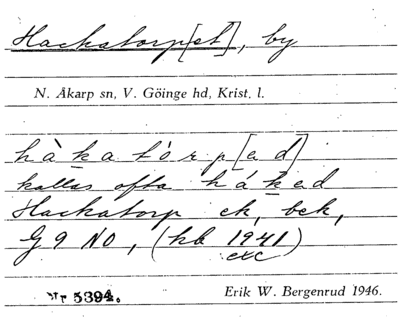 Hackatorp[et], by
N. Åkarp sn, V. Göinge hd, Krist. l.
hàkatórp[ad]
kallas ofta håked
Hackatorp ek, bek,
G9 NO, (hb 1941)
etc
5394. Erik W. Bergenrud 1946.